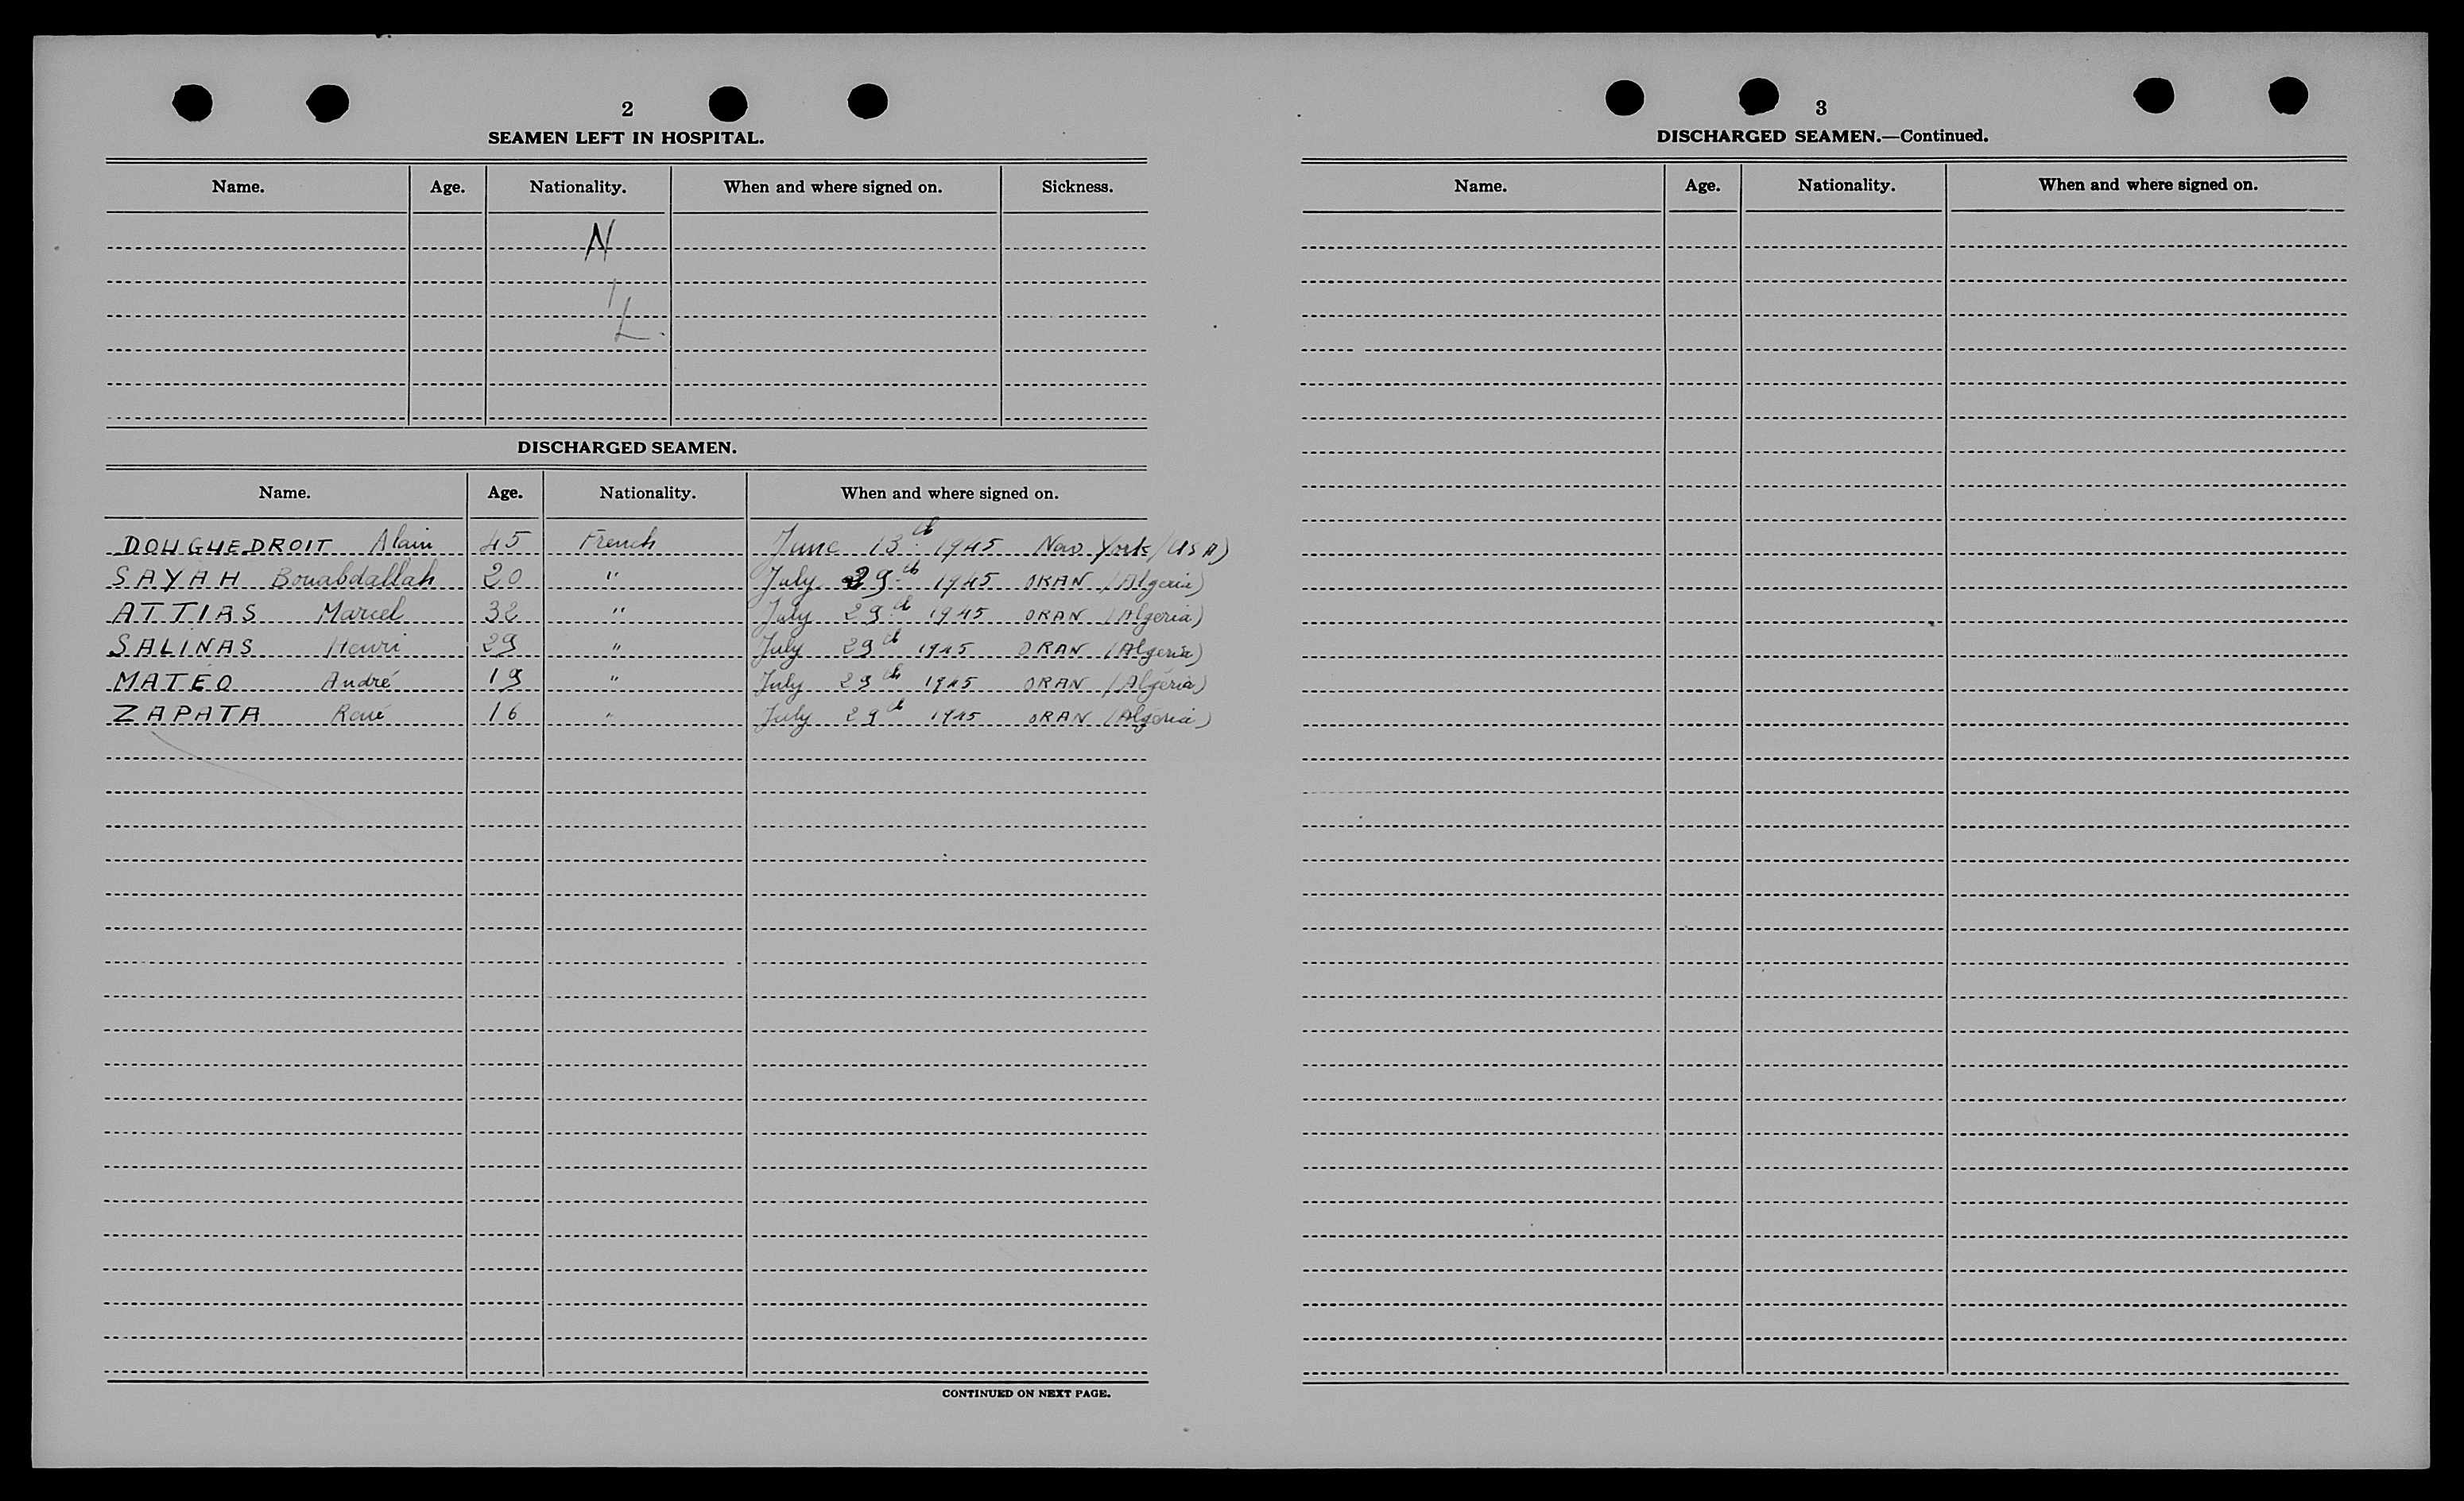 2
SEAMEN LEFT IN HOSPITAL.
Name. Age. Nationality. When and where signed on. Sickness.
N
I
L.
DISCHARGED SEAMEN.
Name. Age. Nationality. When and where signed on.
DOUGUEDROIT Alain 45 French June 13th 1945 New York (USA)
SAYAH Bouabdallah 20 " July 29th 1945 ORAN (Algeria)
ATTIAS Marcel 32 " July 29th 1945 ORAN (Algeria)
SALINAS Henri 29 " July 29th 1945 ORAN (Algeria)
MATEO André 19 " July 29th 1945 ORAN (Algéria)
ZAPATA René 16 " July 29th 1945 ORAN (Algéria)
CONTINUED ON NEXT PAGE.
3
DISCHARGED SEAMEN.—Continued.
Name. Age. Nationality. When and where signed on.